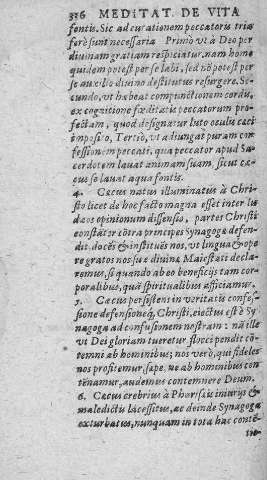 316 MEDITAT. DE VITA
fontis. Sic ad curationem peccatoris tria
ferè sunt necessaria. Primò vt à Deo per
diuinam gratiam respiciatur, nam homo
quidem potest per se labi, sed nõ potest per
se auxilio diuino destitutus resurgere. Se-
cundo, vt habeat compunctionem cordis,
ex cognitione fœditatis peccatorum pro-
fectam, quod designatur luto oculis cæci
imposito, Tertiò, vt adiungat puram con
fessionem peccati, qua peccator apud Sa-
cerdotem lauat animam suam, sicut cæ-
cus se lauat aqua fontis.
4. Cæcus natus illuminatus à Chri-
sto licet de hoc facto magna esset inter Iu
dæos opinionum dissensio, partes Christi
constãter cõtra principes Synagogæ defen-
dit, docẽs & instituẽs nos, vt lingua & ope
re gratos nos suæ diuinæ Maiestati decla-
remus, si quando ab eo beneficijs tam cor-
poralibus, quã spiritualibus afficiamur.
5. Cæcus persistens in veritatis confes-
sione defensioneq́; Christi, eiectus est è Sy
nagoga ad confusionem nostram: nã ille
vt Dei gloriam tueretur flocci pendit cõ-
temni ab hominibus; nos verò, qui fideles
nos profitemur, sæpe, ne ab hominibus con
tẽnamur, audemus contemnere Deum.
6. Cæcus crebrius à Pharisæis iniurijs &
maledictis lacessitus, ac deinde Synagoga
exturbatus, nunquam in tota hac contẽ-